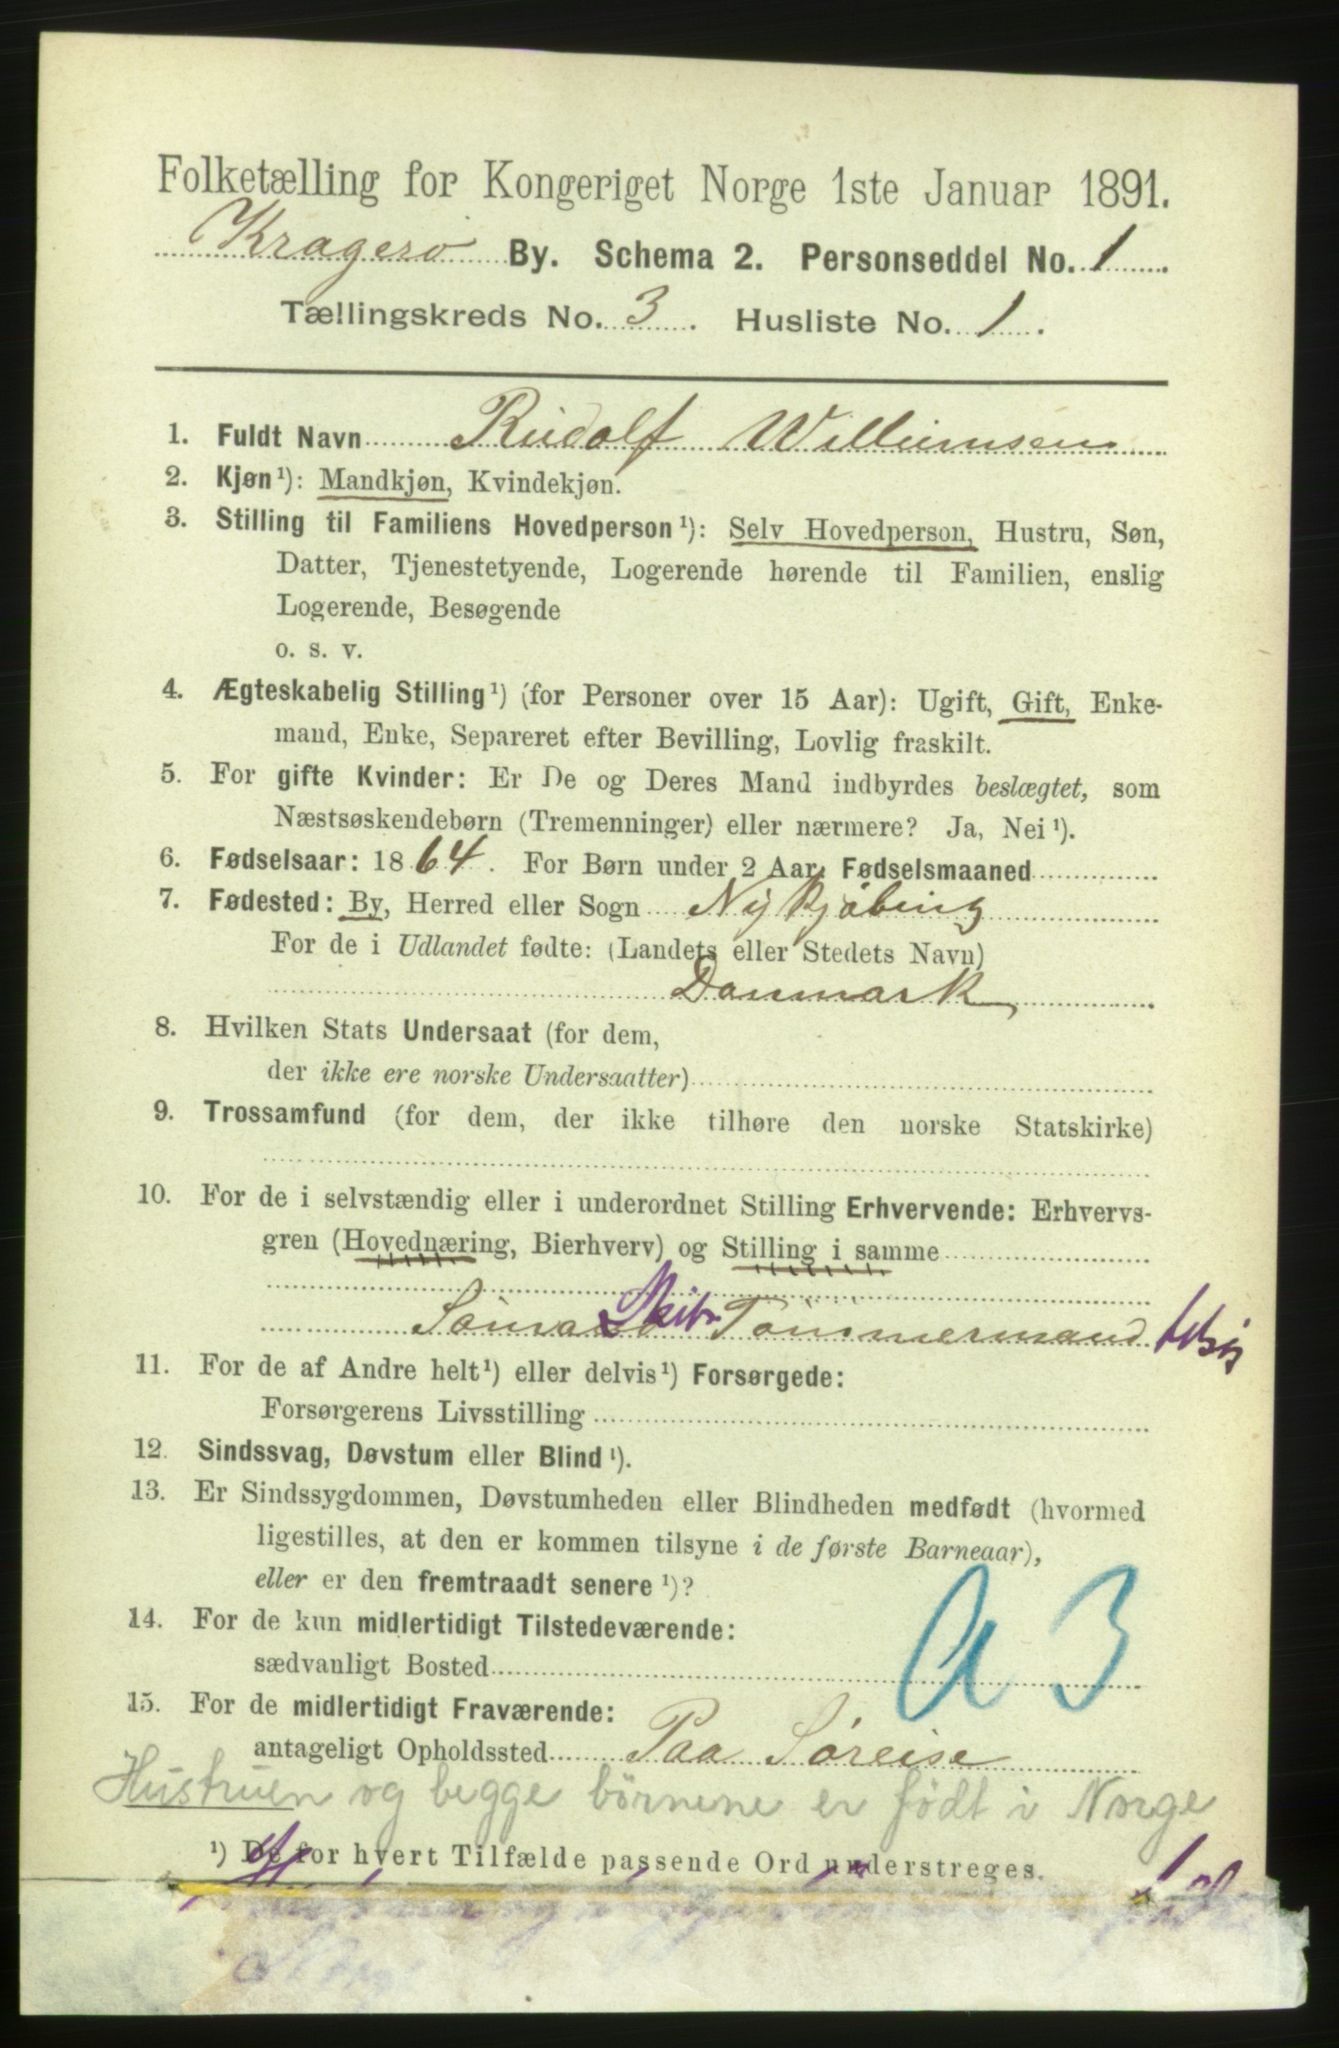 Folketælling for Kongeriget Norge 1ste Januar 1891.
Kragerø By. Schema 2. Personseddel No. 1.
Tællingskreds No. 3. Husliste No. 1.
1. Fuldt Navn Rudolf Willumsen
2. Kjøn ¹): Mandkjøn, Kvindekjøn.
3. Stilling til Familiens Hovedperson ¹): Selv Hovedperson, Hustru, Søn,
Datter, Tjenestetyende, Logerende hørende til Familien, enslig
Logerende, Besøgende
o. s. v.
4. Ægteskabelig Stilling ¹) (for Personer over 15 Aar): Ugift, Gift, Enke-
mand, Enke, Separeret efter Bevilling, Lovlig fraskilt.
5. For gifte Kvinder: Er De og Deres Mand indbyrdes beslægtet, som
Næstsøskendebørn (Tremenninger) eller nærmere? Ja, Nei ¹).
6. Fødselsaar: 1864. For Børn under 2 Aar, Fødselsmaaned
7. Fødested: By, Herred eller Sogn Nykjøbing
For de i Udlandet fødte: (Landets eller Stedets Navn)
Danmark
8. Hvilken Stats Undersaat (for dem,
der ikke ere norske Undersaatter)
9. Trossamfund (for dem, der ikke tilhøre den norske Statskirke)
10. For de i selvstændig eller i underordnet Stilling Erhvervende: Erhvervs-
gren (Hovednæring, Bierhverv) og Stilling i samme
Tømmermand
11. For de af Andre helt ¹) eller delvis ¹) Forsørgede:
Forsørgerens Livsstilling
12. Sindssvag, Døvstum eller Blind ¹).
13. Er Sindssygdommen, Døvstumheden eller Blindheden medfødt (hvormed
ligestilles, at den er kommen tilsyne i de første Barneaar),
eller er den fremtraadt senere ¹)?
14. For de kun midlertidigt Tilstedeværende:
sædvanligt Bosted
a 3
15. For de midlertidigt Fraværende:
antageligt Opholdssted Paa Søreise
Hustruen og begge børnene er født i Norge
¹) De for hvert Tilfælde passende Ord understreges.